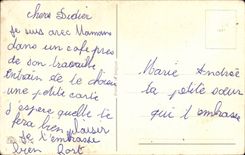 chere Didier
je suis avec Maman
dans un cafe pres
de son travaille
entrain de te choisir
une petite carte
j'espere quelle te
fera bien plaisir
Je t'embrasse
bien fort
Marie Andrée
ta petite sœur
qui t'embrasse